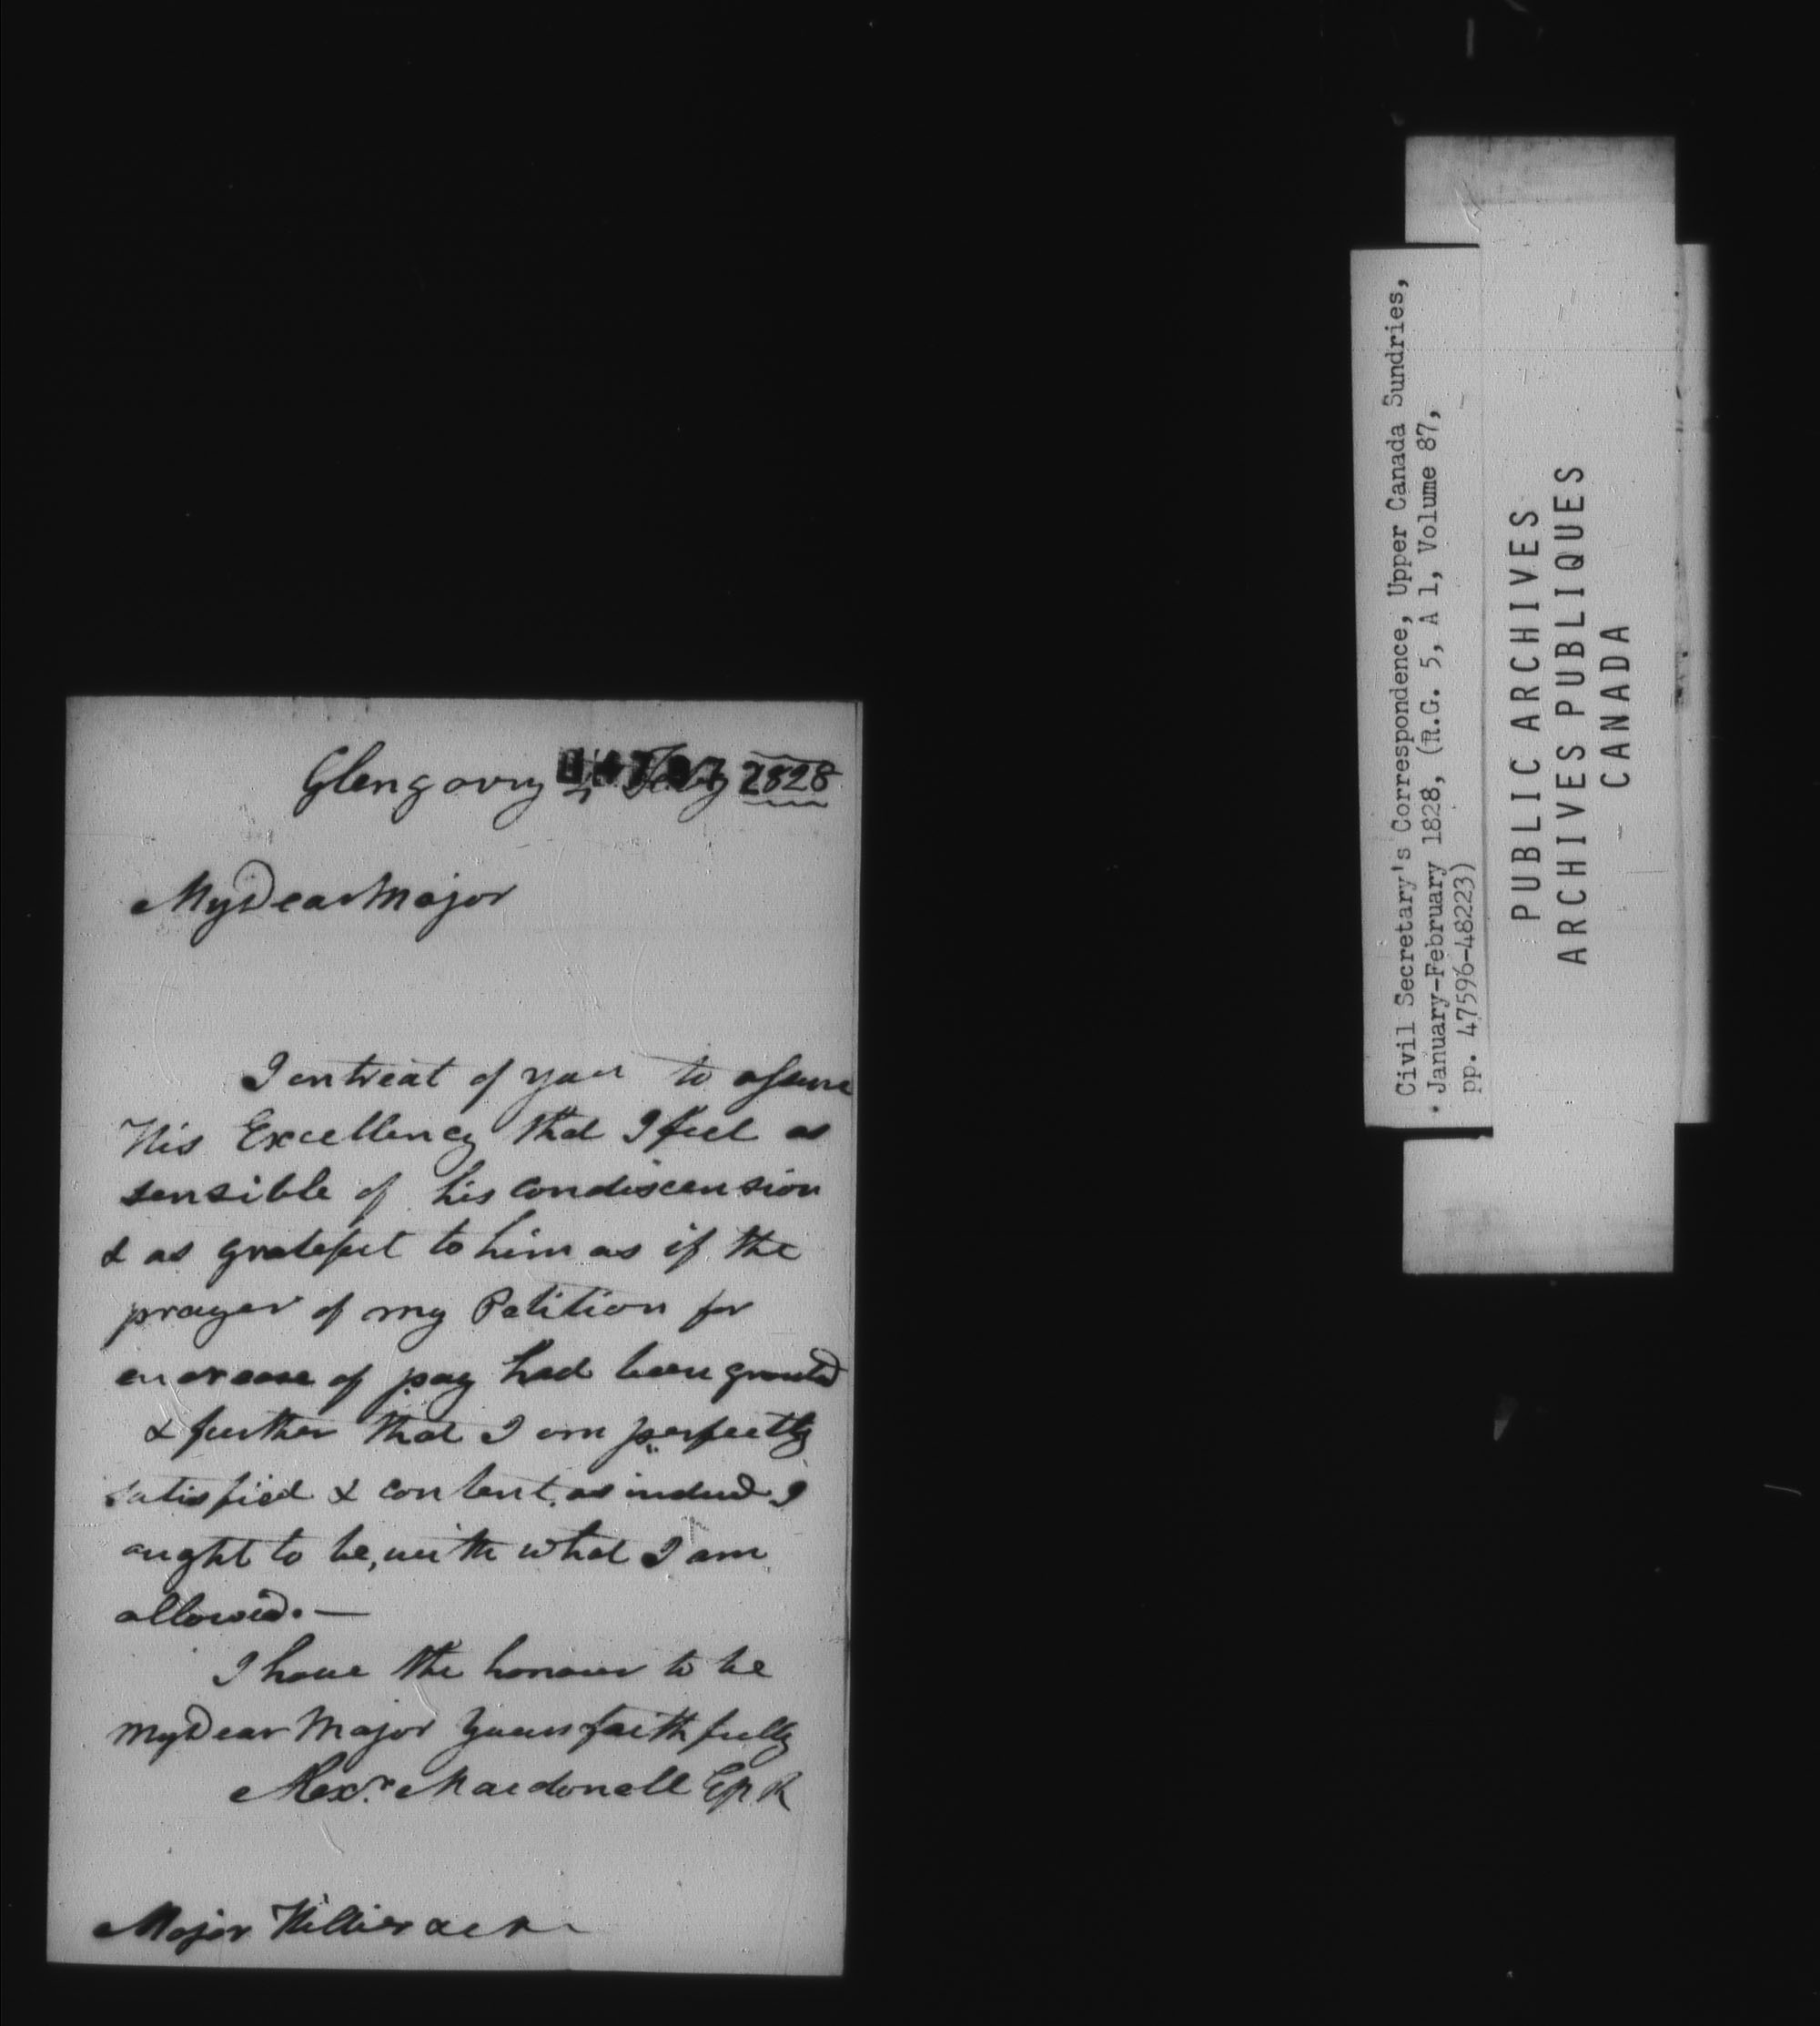 Glengarry Feby 1828
My Dear Major
I entreat of you to assure
His Excellency that I feel as
sensible of his condiscension
& as gratefull to him as if the
prayer of my Petition for
encrease of pay had been granted
& further that I am perfectly
satisfied & content, as indeed I
aught to be, with what I am
allowed. —
I have the honour to be
My Dear Major yours faithfully
Alexr. Macdonell
Major Hillier &c &c
Civil Secretary's Correspondence, Upper Canada Sundries,
January-February 1828, (R.G. 5, A 1, Volume 87,
pp. 47596-48223)
PUBLIC ARCHIVES
ARCHIVES PUBLIQUES
CANADA